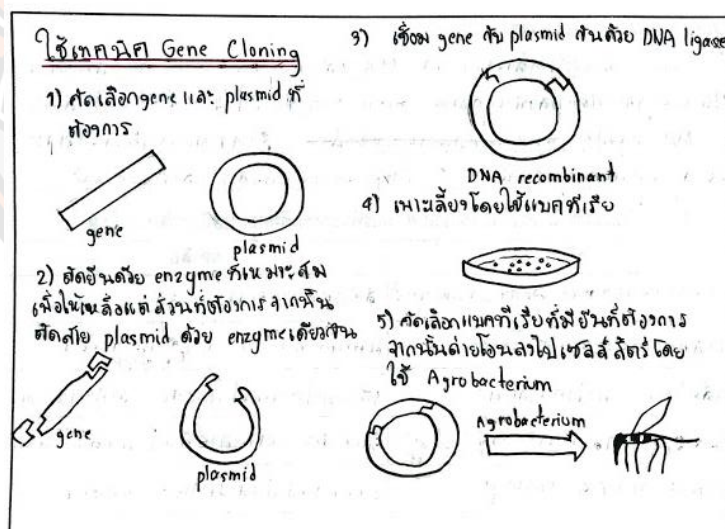 ใช้เทคนิค Gene Cloning
1) คัดเลือกgeneและ plasmid ที่
ต้องการ
gene
plasmid
2) ตัดยีนด้วย enzyme ที่เหมาะสม
เพื่อให้เหลือแต่ส่วนที่ต้องการ จากนั้น
ตัดสาย plasmid ด้วย enzymeเดียวกัน
gene
plasmid
3) เชื่อม gene กับ plasmid กันด้วย DNA ligase
DNA recombinant
4) เพาะเลี้ยงโดยใช้แบคทีเรีย
5) คัดเลือกแบคทีเรียที่มียีนที่ต้องการ
จากนั้นถ่ายโอนลงไปเซลล์ โดย
ใช้ Agrobacterium
Agrobacterium